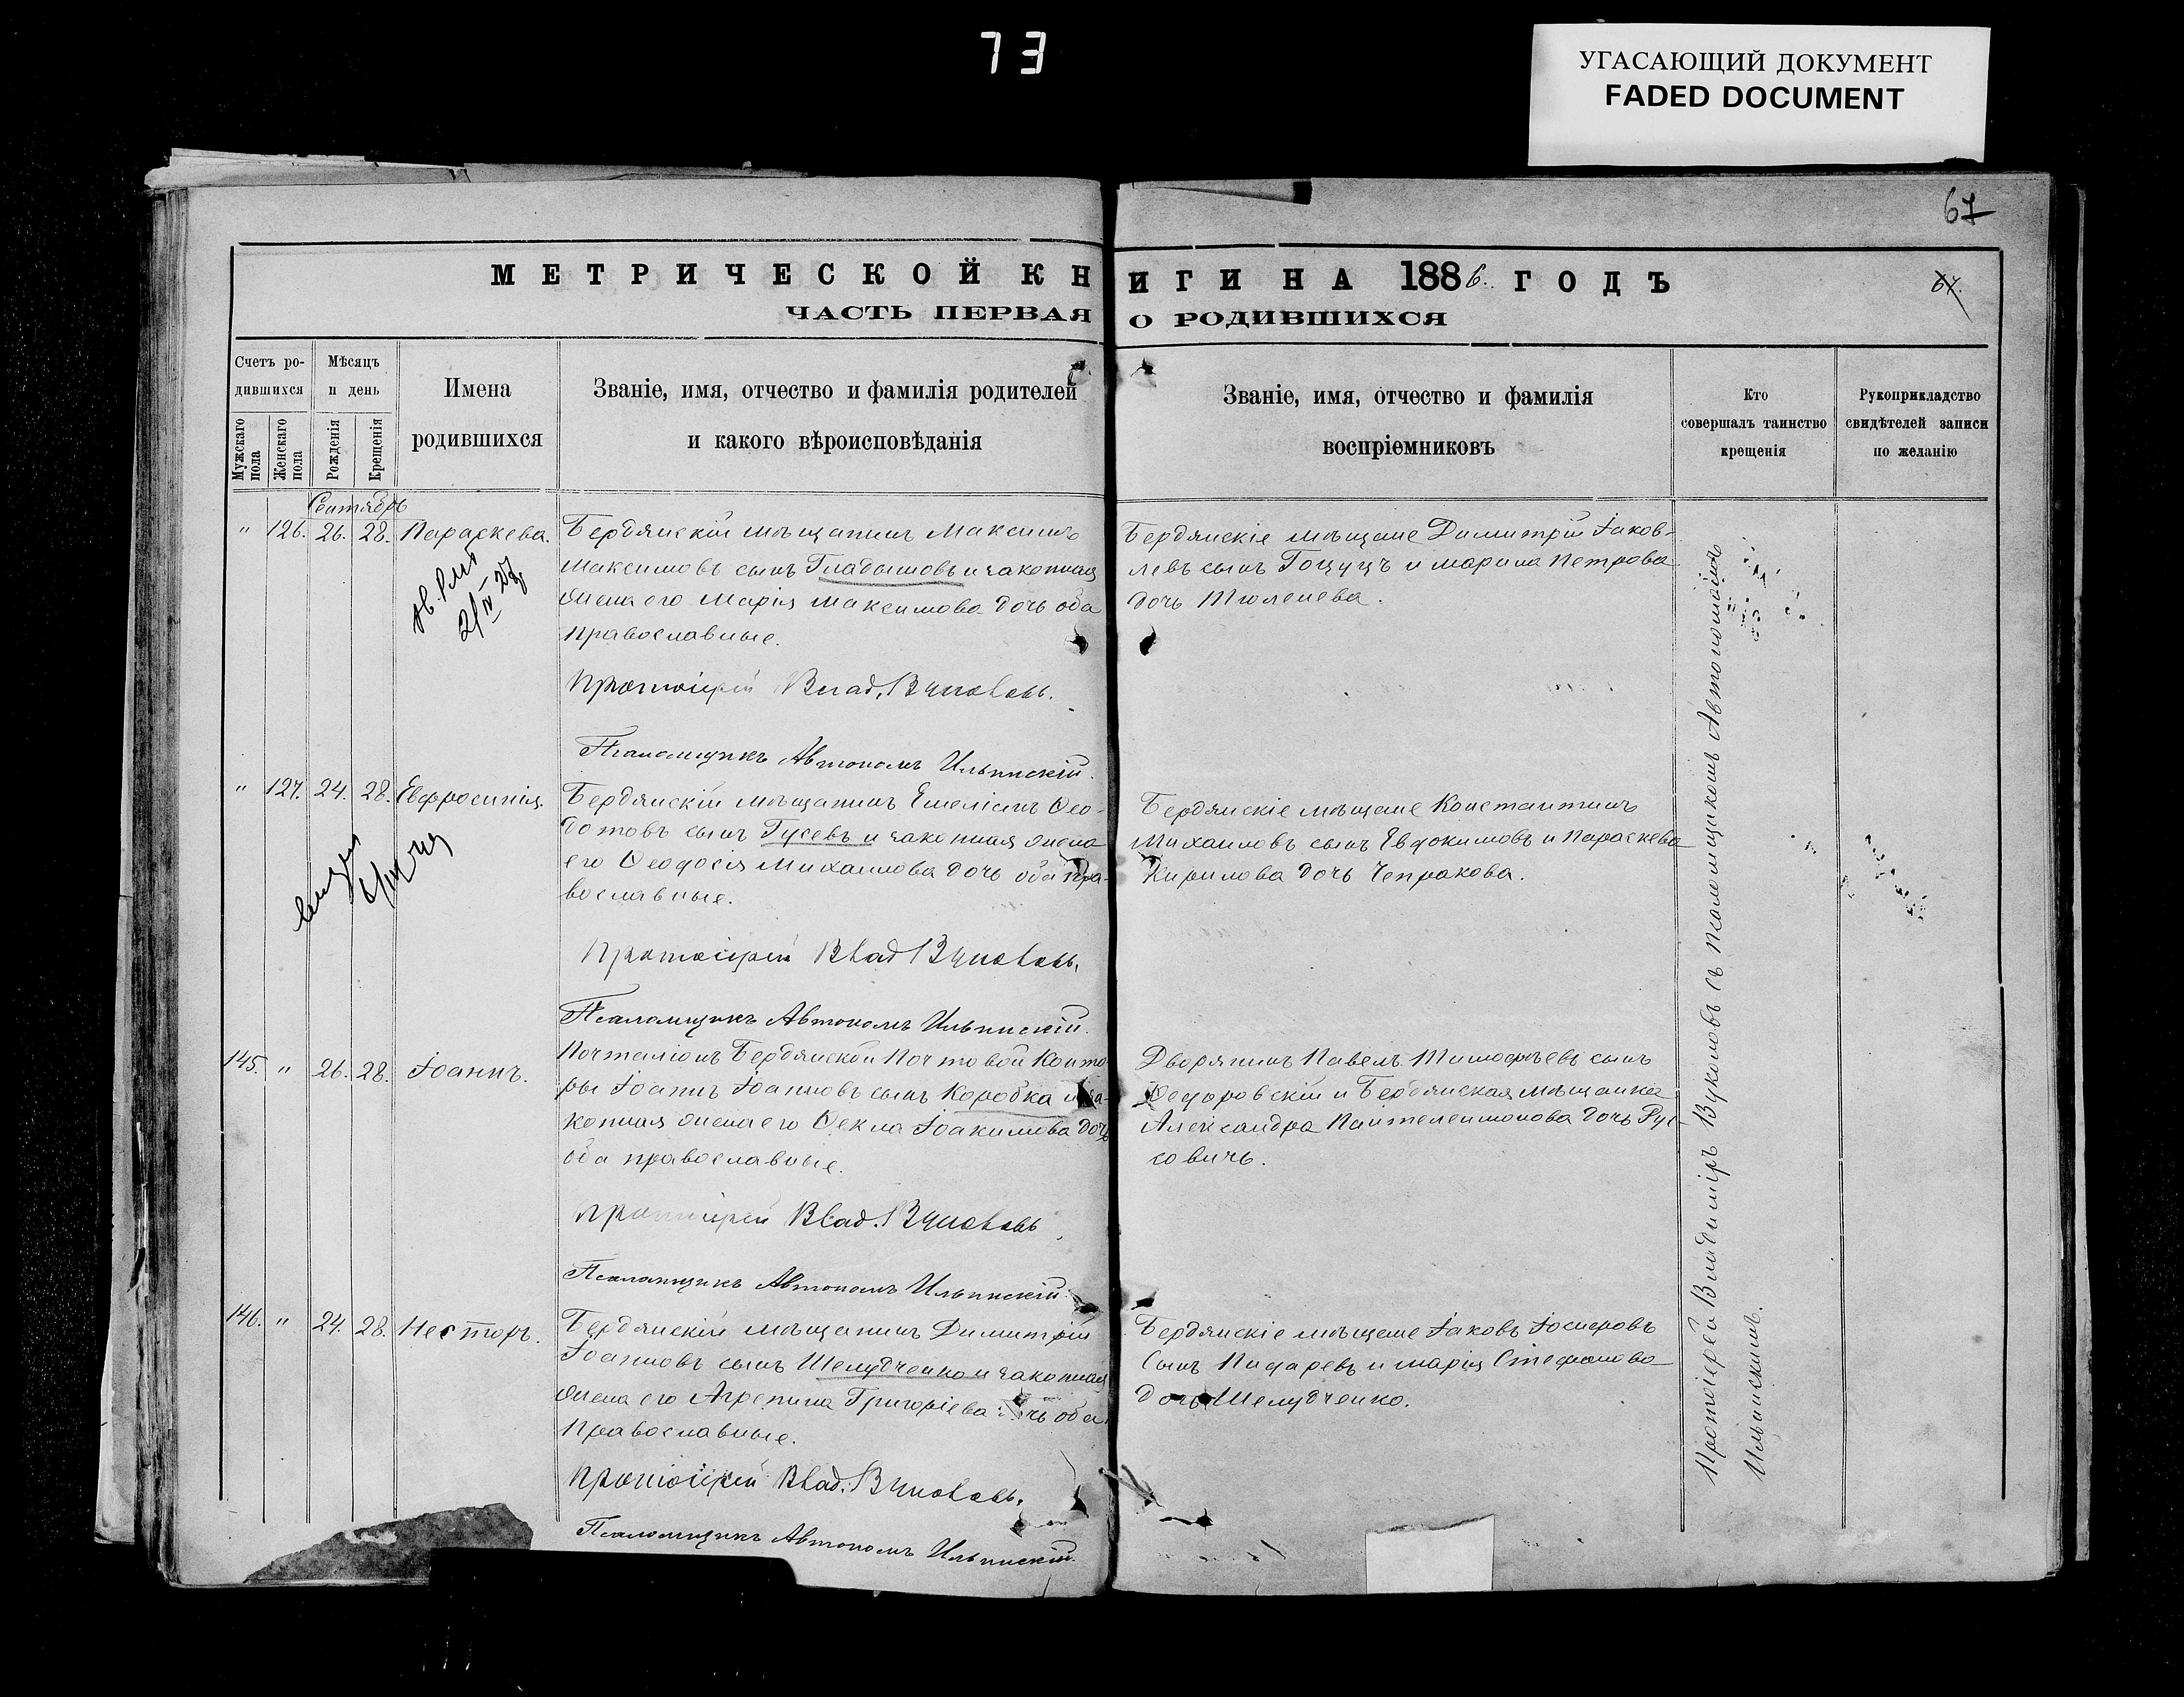 73
УГАСАЮЩИЙ ДОКУМЕНТ
FADED DOCUMENT
67
МЕТРИЧЕСКОЙ КНИГИ НА 1886. ГОДЪ
ЧАСТЬ ПЕРВАЯ О РОДИВШИХСЯ
Счетъ ро-
дившихся
Мужскаго пола
Женскаго пола
Мѣсяцъ
и день
Рожденія
Крещенія
Имена
родившихся
Званіе, имя, отчество и фамилія родителей
и какого вѣроисповѣданія
Званіе, имя, отчество и фамилія
воспріемниковъ
Кто
совершалъ таинство
крещенія
Рукоприкладство
свидѣтелей записи
по желанію
Сентябрь
" 126. 26. 28. Параскева.
Бердянскій мѣщанинъ Максимъ
Максимовъ сынъ Гладышовъ и законная
жена его Марія Максимова дочь оба
православные.
Протоіерей Влад. Вуколовъ.
Псаломщикъ Автономъ Ильинскій.
Бердянскіе мѣщане Димитрій Іаков-
левъ сынъ Гоцуцъ и Марина Петрова
дочь Тюленева.
" 127. 24. 28. Евфросинія.
Бердянскій мѣщанинъ Емеліанъ Ѳео-
дотовъ сынъ Гусевъ и законная жена
его Ѳеодосія Михаилова дочь оба пра-
вославные.
Протоіерей Влад Вуколовъ.
Псаломщикъ Автономъ Ильинскій.
Бердянскіе мѣщане Константинъ
Михаиловъ сынъ Евдокимовъ и Параскева
Кирилова дочь Чепракова.
145. " 26. 28. Іоаннъ.
Почталіонъ Бердянской Почтовой Конто-
ры Іоаннъ Іоанновъ сынъ Коробка и за-
конная жена его Ѳекла Іоакимова дочь
оба православные.
Протоіерей Влад. Вуколовъ
Псаломщикъ Автономъ Ильинскій.
Дворянинъ Павелъ Тимофѣевъ сынъ
Ѳедоровскій и Бердянская мѣщанка
Александра Пантелеимонова дочь Рус-
совичь.
146. " 24. 28. Несторъ.
Бердянскій мѣщанинъ Димитрій
Іоанновъ сынъ Шелудченко и законная
жена его Агрепина Григоріева дочь оба
Православные.
Протоіерей Влад. Вуколовъ.
Псаломщикъ Автономъ Ильинскій.
Бердянскіе мѣщане Іаковъ Іосифовъ
сынъ Писаревъ и Марія Стефанова
дочь Шелудченко.
Протоіерей Владиміръ Вуколовъ съ псаломщикомъ Автономомъ
Ильинскимъ.